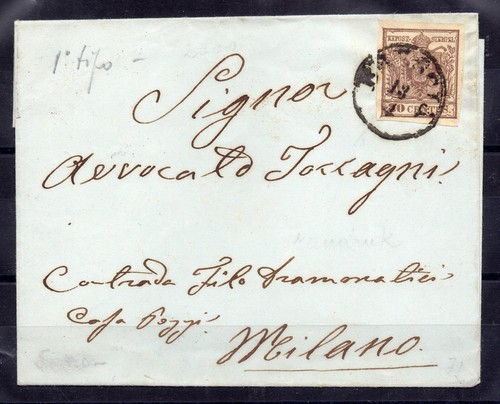 1º tipo -
KKPOST-STEMPEL
30 CENTES
Signor
Avvocato Tozzagni
Contrada Filo Dramonatici
Casa Pozzi
Milano.